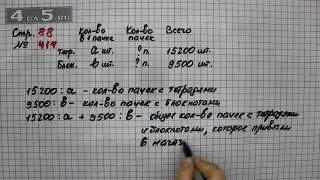 4 DA 5.ru
Стр. 88 Кол-во в 1 пачке Кол-во пачек Всего
№ 414
Тетр. a шт. ? п. 15200 шт.
Блок. b шт. ? п. 9500 шт.
15200 : a - кол-во пачек с тетрадями
9500 : b - кол-во пачек с блокнотами
15200 : a + 9500 : b - общее кол-во пачек с тетрадями
и блокнотами, которое привезли
в магаз